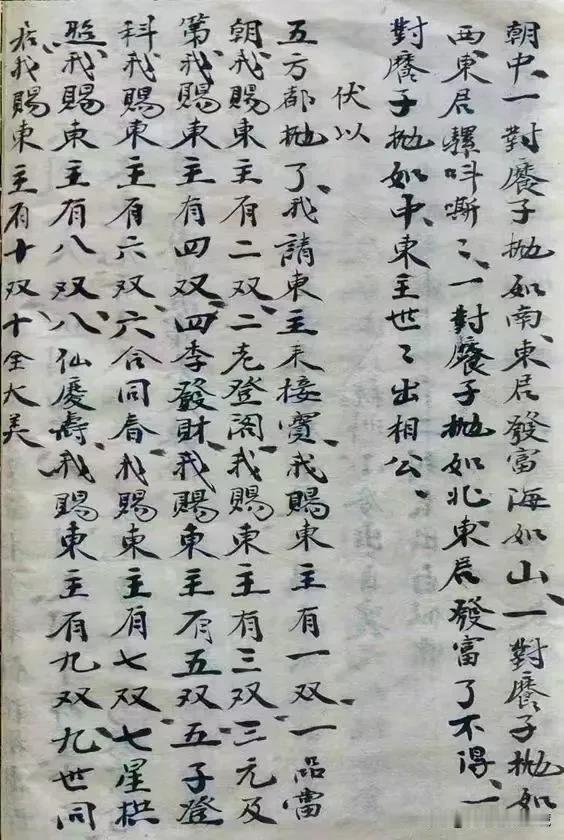 朝中、一對餈子抛如南、東居發富海如山、一對餈子抛如
西、東居騾呌嘶〻、一對餈子抛如北、東居發富了不得、一
對餈子抛如中、東主世〻出相公、
伏以
五方都抛了、我請東主来接寳、我賜東主有一双、一品當
朝、我賜東主有二双、二老登阁、我賜東主有三双、三元及
第、我賜東主有四双、四李發財、我賜東主有五双、五子登
科、我賜東主有六双、六合同春、我賜東主有七双、七星拱
照、我賜東主有八双、八仙慶壽、我賜東主有九双、九世同
居、我賜東主有十双、十全大美